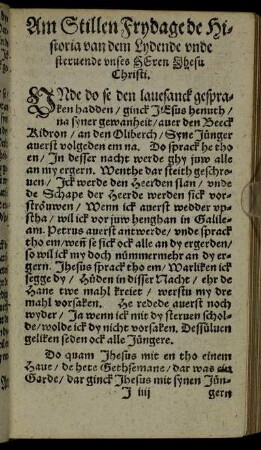 Am Stillen Frydage de Hi-
storia van dem Lydende vnde
steruende vnses HEren Jhesu
Christi.
VNde do se den lauesanck gespra-
ken hadden / ginck JEsus henuth /
na syner gewanheit / auer den Beeck
Kidron / an den Oliberch / Syne Jünger
auerst volgeden em na. Do sprack he tho
en / Jn desser nacht werde ghy juw alle
an my ergern. Wenthe dar steith geschre-
uen / Jck werde den Heerden slan / vnde
de Schape der Heerde werden sick vor-
ströuwen / Wenn ick auerst wedder vp-
stha / wil ick vor juw henghan in Galile-
am. Petrus auerst antwerde / vnde sprack
tho em / weñ se sick ock alle an dy ergerden /
so wil ick my doch nümmermehr an dy er-
gern. Jhesus sprack tho em / Warliken ick
segge dy / Hüden in disser Nacht / ehr de
Hane twe mahl kreiet / werstu my dre
mahl vorsaken. He redede auerst noch
wyder / Ja wenn ick mit dy steruen schol-
de / wolde ick dy nicht vorsaken. Dessüluen
geliken seden ock alle Jüngere.
Do quam Jhesus mit en tho einem
Haue / de hete Gethsemane / dar was ein
Garde / dar ginck Jhesus mit synen Jün-
J iiij gern